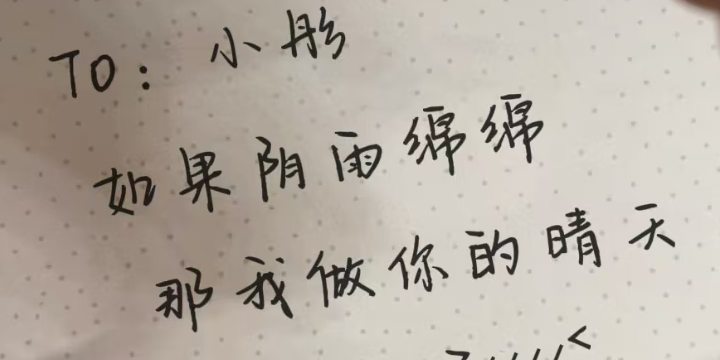 TO: 小彤
如果阴雨绵绵
那我做你的晴天